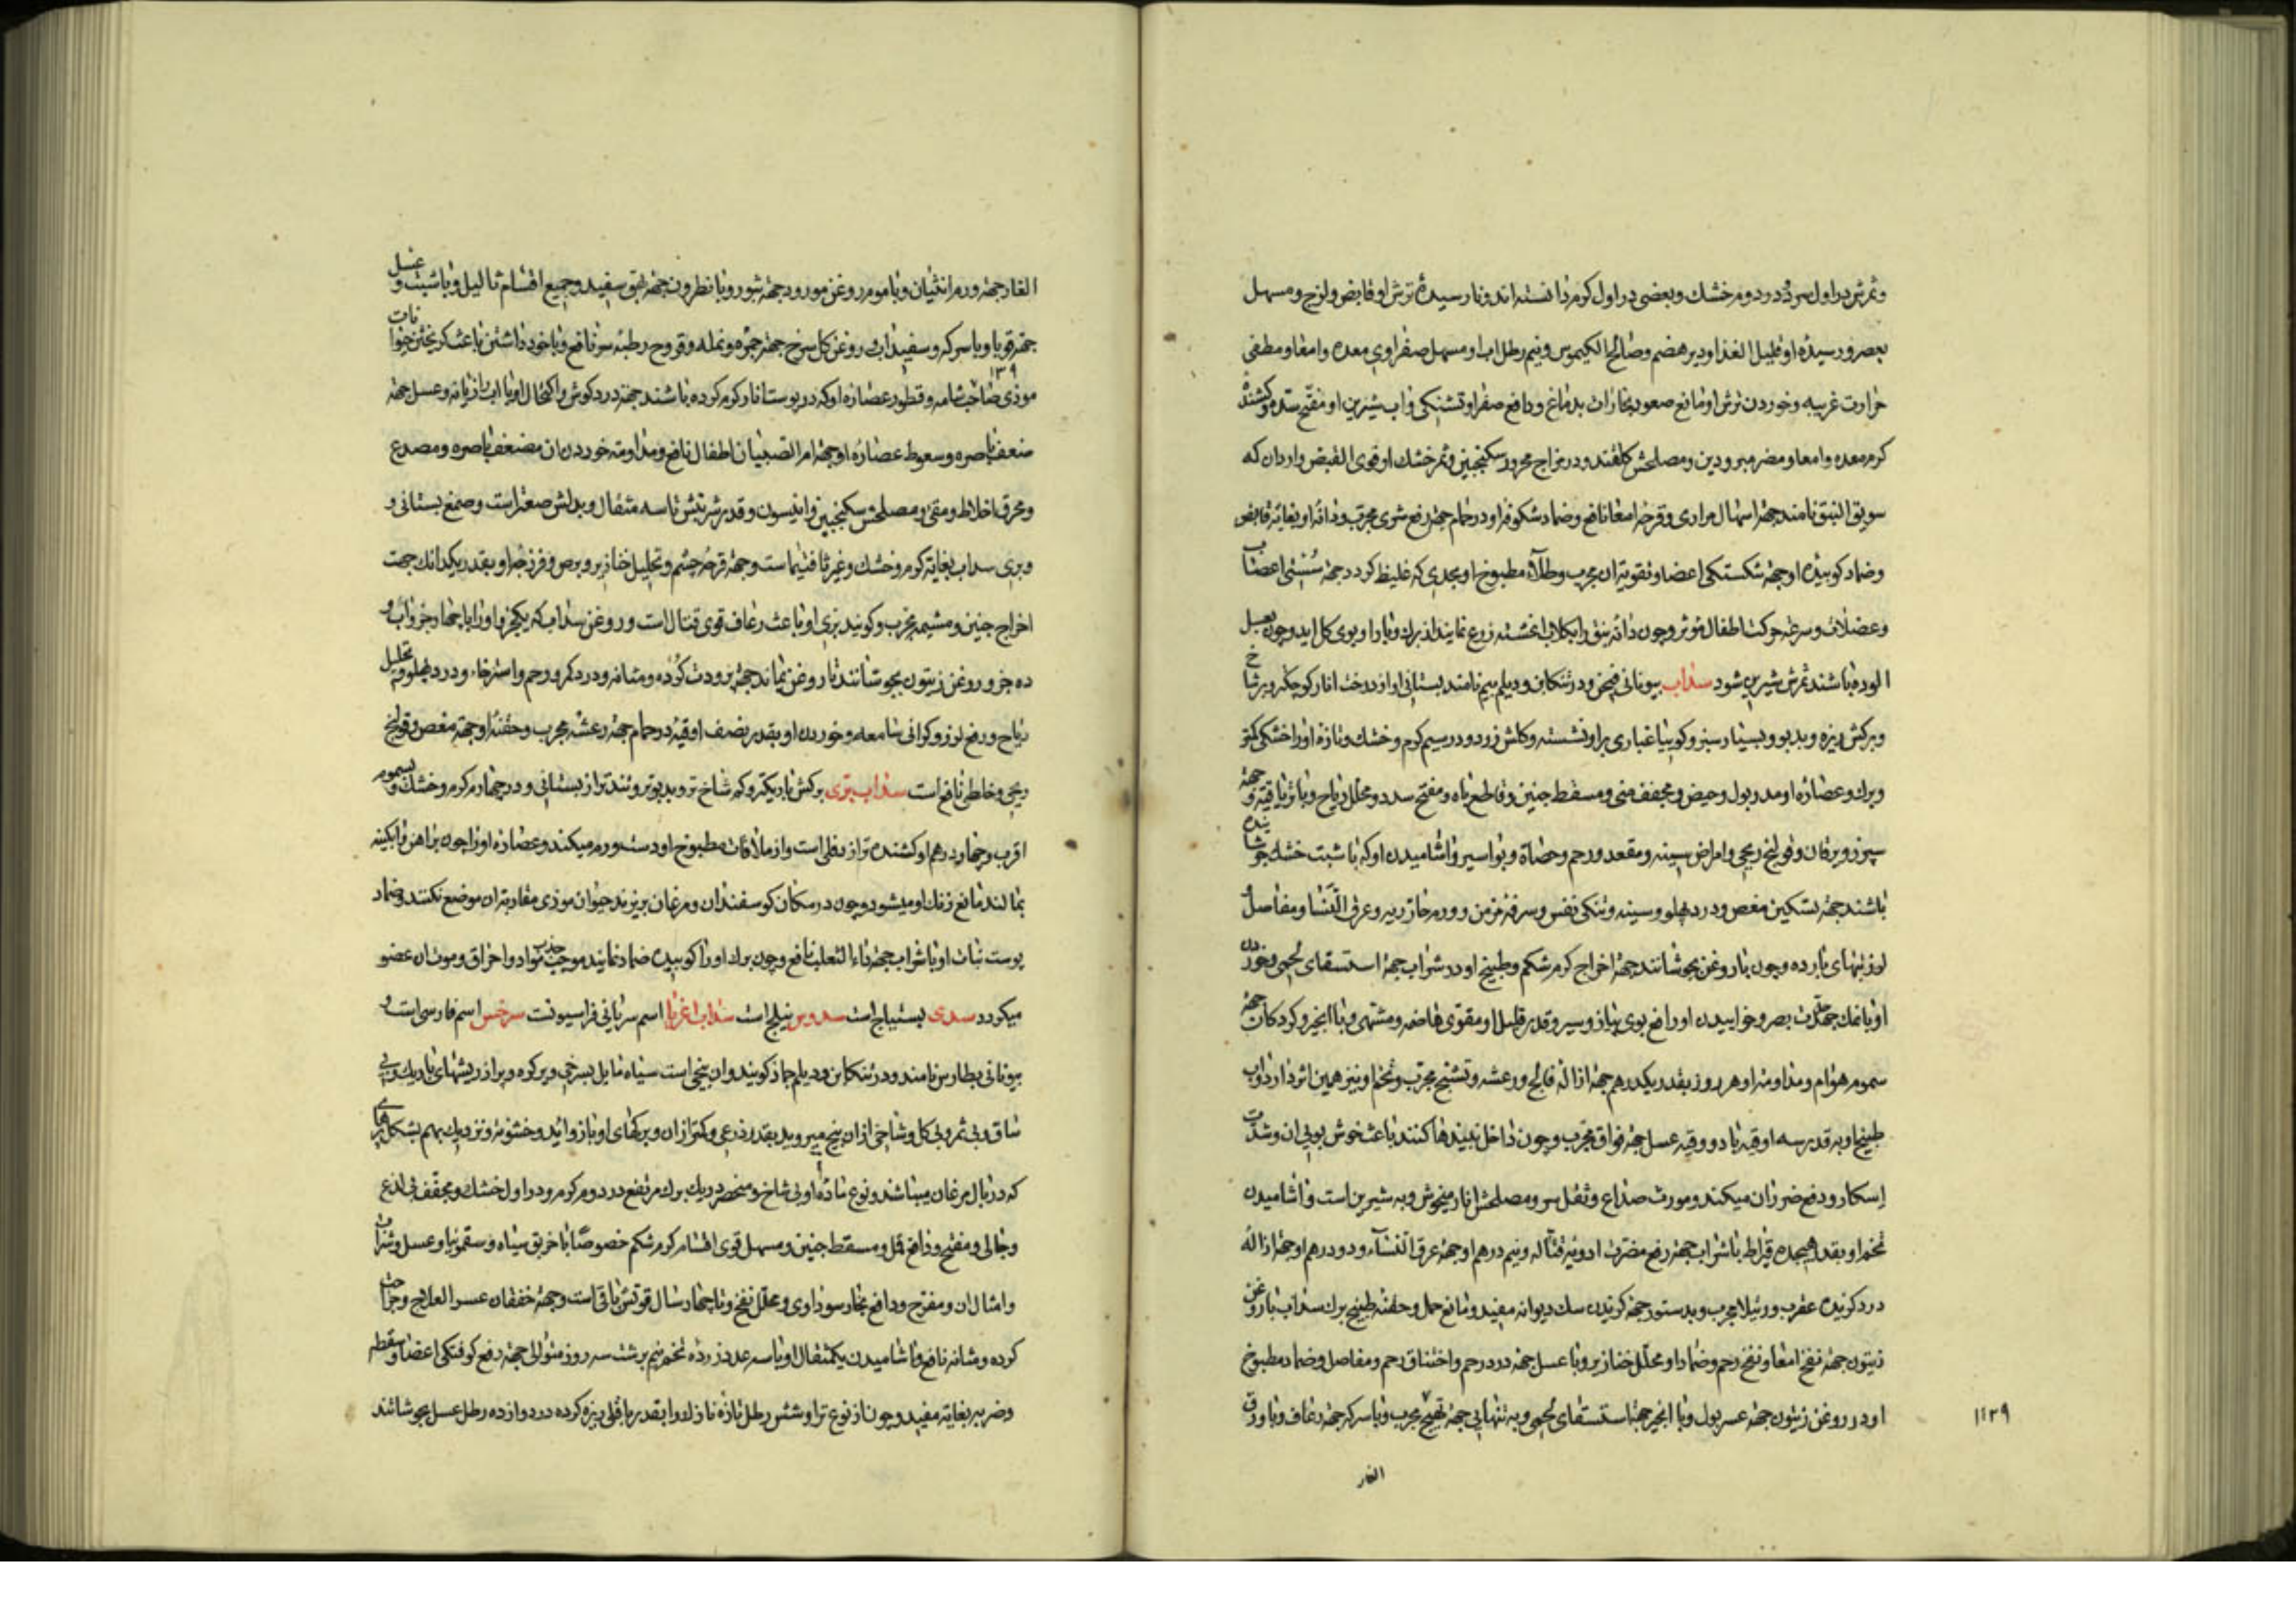 وثمرش در اول سرد و در دوم خشك و بعضی در اول كرم دانسته اند و نارسیدهٔ ترش او قابض و لزج و مسهل
بعصر و رسیدهٔ او قلیل الغذا و دیر هضم و صالح الكیموس و نیم رطل اب او مسهل صفراوی معده و امعا و مطفی
حرارت غریبه و خوردن ترش او مانع صعود بخارات بدماغ و دافع صفرا و تشنكی و اب شیرین او مفتح سدد و كشندهٔ
كرم معده و امعا و مضر مبرودین و مصلحش كلقند و در مزاج محرور سكنجبین و ثمر خشك او قوی القبض و ارد ان كه
سویق النبق نامند جهة اسهال مراری و قرحهٔ امعا نافع و ضماد شكوفهٔ او در حمام جهة رفع شری مجرب و دانهٔ او بغایة قابض
و ضماد كوبیدهٔ او جهة شكستكی اعضا و تقویة ان مجرب و طلاء مطبوخ او بحدی كه غلیظ كردد جهة سستی اعصاب
و عضلات و سرعة حركت اطفال موثر و چون دانه نبق را بكلاب اغشته زرع نمایند از برك و بار او بوی كل اید و چون بعسل
الوده باشند ثمرش شیرین شود سداب بیونانی فیجن و در تنكابن و دیلم پیم نامند بستانی او از درخت انار كوچكتر و پرشاخ
و بركش ریزه و بدبو و بسیار سبز و كویا غباری بر او نشسته و كلش زرد و در سیم كرم و خشك و تازه او را خشكی كمتر
و برك و عصارهٔ او مدر بول و حیض و مجفف منی و مسقط جنین و قاطع باه و مفتح سدد و محلل ریاح و با تریاقیة و جهة
سپرز و یرقان و قولنج ریحی و امراض سینه و مقعد و رحم و حصاة و بواسیر و اشامیدن او كه با شبت خشك جوشانیده
باشند جهة تسكین مغص و درد پهلو و سینه و تنكی نفس و سرفه مزمن و ورم حار ریه و عرق النسا و مفاصل و
لرزتبهای بارده و چون با روغن بجوشانند جهة اخراج كرم شكم و طبیخ او در شراب جهة استسقای لحمی و خوردن
او با نمك جهة حدّت بصر و خواییدن او رافع بوی پیاز و سیر و قدر قلیل او مقوی هاضمه و مشتهی و با انجیر و كردكان جهة
سموم هوام و مداومة او هر روز بقدر یكدرهم جهة ازالهٔ فالج و رعشه و تشنج مجرب و تخم او نیز همین اثر دارد و اب
طبیخ او به قدر سه اوقیه با دو وقیه عسل جهة فواق مجرب و چون داخل نبیذها كنند باعث خوش بویی ان و شدّت
اسكار و دفع ضرر ان میكند و مورث صداع و ثقل سر و مصلحش انار میخوش و به شیرین است و اشامیدن
تخم او بقدر هیجده قیراط با شراب جهة رفع مضرت ادویهٔ قتاله و نیم درهم او جهة عرق النساء و دو درهم او جهة ازالهٔ
درد كزیدن عقرب و رتیلا مجرب و بدستور جهة كزیدن سك دیوانه مفید و مانع حمل و حقنهٔ طبیخ برك سداب با روغن
زیتون جهة نفخ امعا و نفخ رحم و ضماد او محلل خنازیر و با عسل جهة درد رحم و اختناق رحم و مفاصل و ضماد مطبوخ
او در روغن زیتون جهة عسر بول و با انجیر جهة استسقای لحمی و به تنهایی جهة تهیج مجرب و با سركه جهة رعاف و با ورق
۱۱۳۹
الغار
الغار جهة ورم انثیان و با موم و روغن مورد جهة بثور و با نطرون جهة بهق سفید و جمیع اقسام ثالیل و با شبت و عسل
جهة قوبا و با سركه و سفیداب و روغن كل سرخ جهة جمره و نمله و قروح رطبهٔ سر نافع و با خود داشتن باعث كریختن حیوانات
۱۳۹
موذی صاحب شامه و قطور عصارهٔ او كه در پوست انار كرم كرده باشند جهة درد كوش و اكتحال او با اب رازیانه و عسل جهة
ضعف باصره و سعوط عصارهٔ او جهة ام الصبیان اطفال نافع و مداومة خوردن ان مضعف باصره و مصدع
و محرق اخلاط و مقی و مصلحش سكنجبین و انیسون و قدر شربتش تا سه مثقال و بدلش صعتر است و صمغ بستانی و
و بری سداب بغایة كرم و خشك و غیر ثافسیا است و جهة قرحهٔ چشم و تحلیل خنازیر و برص و فرزجهٔ او بقدر یكدانك جهت
اخراج جنین و مشیمه مجرب و كویند بری او باعث رعاف قوی قتال است و روغن سداب كه یكجزو او را با چهار جزو اب و
ده جزو روغن زیتون بجوشانند تا روغن بماند جهة برودت كرده و مثانه و درد كمر و رحم و استرخاء و درد پهلو و تحلیل
ریاح و رفع لرز و كرانی سامعه و خوردن او بقدر نصف اوقیه در حمام جهة رعشه مجرب و حقنهٔ او جهة مغص و قولنج
ریحی و خاطر نافع است سداب بری بركش باریكتر و كم شاخ تر و بدبوتر و تندتر از بستانی و در چهارم كرم و خشك و بسموم
اقرب و چهار درهم او كشنده تر از دفلی است و از ملاقات مطبوخ او دست ورم میكند و عصارهٔ او را چون بر اهن و ابكینه
بمالند مانع زنك او میشود و چون در مكان كوسفندان و مرغان بریزند حیوان موذی مقاربة ان موضع نكنند و ضماد
پوست نبات او با شراب جهة داء الثعلب نافع و چون برك او را كوبیده ضماد نمایند موجب جذب مواد و احراق و موت ان عضو
میكردد سدی بستیباج است سدوس نیلج است سداب اغریا اسم سریانی فراسیونست سرخس اسم فارسی است و
بیونانی بطارس نامند و در تنكابن و دیلم جماز كویند و ان بیخی است سیاه مایل بسرخی و پركره و پر از ریشهای باریك و بی
ساق و بی ثمر و بی كل و شاخی از ان بیخ میروید بقدر ذرعی و كمتر از ان و بركهای او با زوائد و خشونة و نزدیك بهم بشكل پرهای
كه در بال مرغان میباشند و نوع مادهٔ او بی شاخ و منحصر در یك برك مرتفع در دوم كرم و در اول خشك و مجفف بی لذع
و جالی و مفتح و دافع قمل و مسقط جنین و مسهل قوی اقسام كرم شكم خصوصًا با خربق سیاه و سقمونیا و عسل و شراب
و امثال ان و مفرح و دافع بخار سوداوی و محلل نفخ و تا چهار سال قوتش باقی است و جهة خفقان عسر العلاج و جراحت
كرده و مثانه نافع و اشامیدن یكمثقال او با سه عدد زردهٔ تخم نیم برشت سه روز متوالی جهة رفع كوفتكی اعضا و سقطه
و ضربه بغایة مفید و چون از نوع تر او شش رطل تازه نازك او را بقدر باقلی ریزه كرده در دوازده رطل عسل بجوشانند